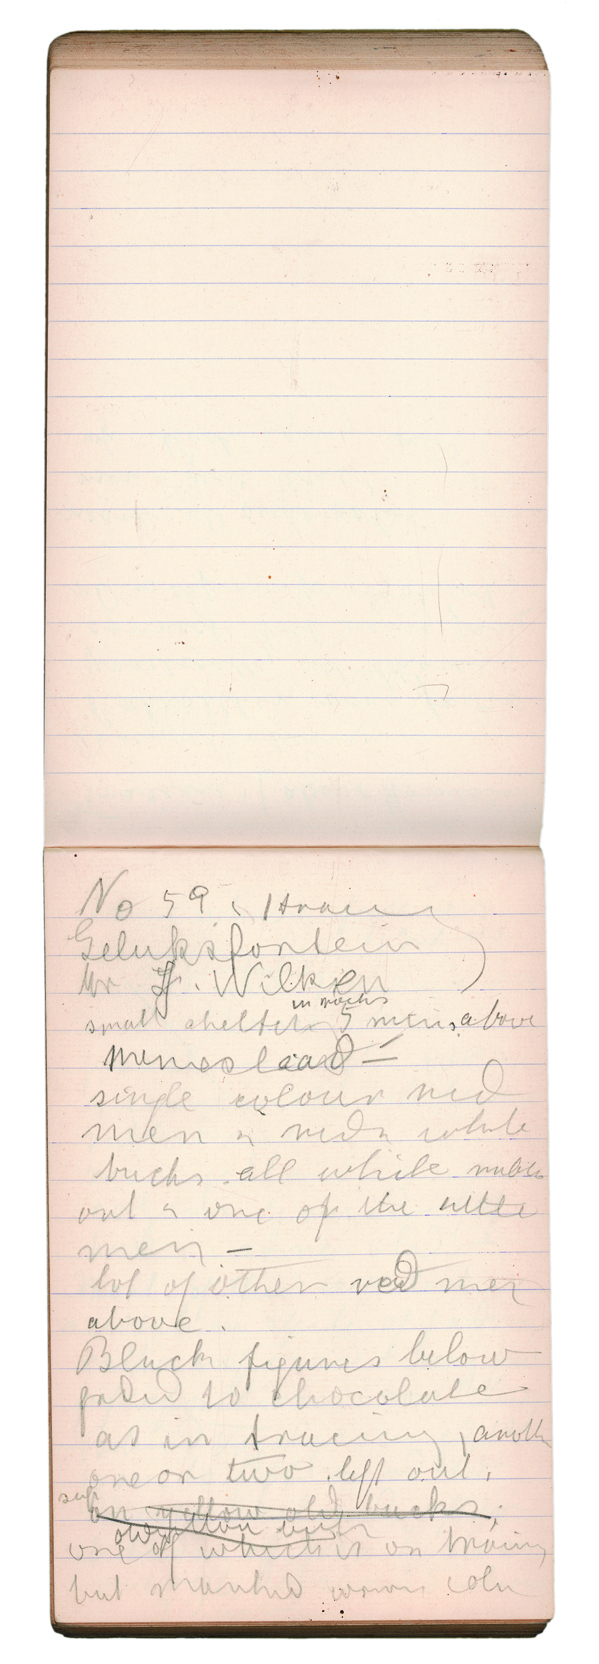 No 59. 1 tracing
Geluksfontein
Mr F. Wilken
in rocks
small shelter 5 mins above
homestead —
single colour red
men & red & white
bucks. all white rubbed
out & one of the little
men —
lot of other red men
above.
Black figures below
faded to chocolate
as in tracing, another
one or two left out.
on yellow old bucks.
one of which is on tracing
but marked wrong color